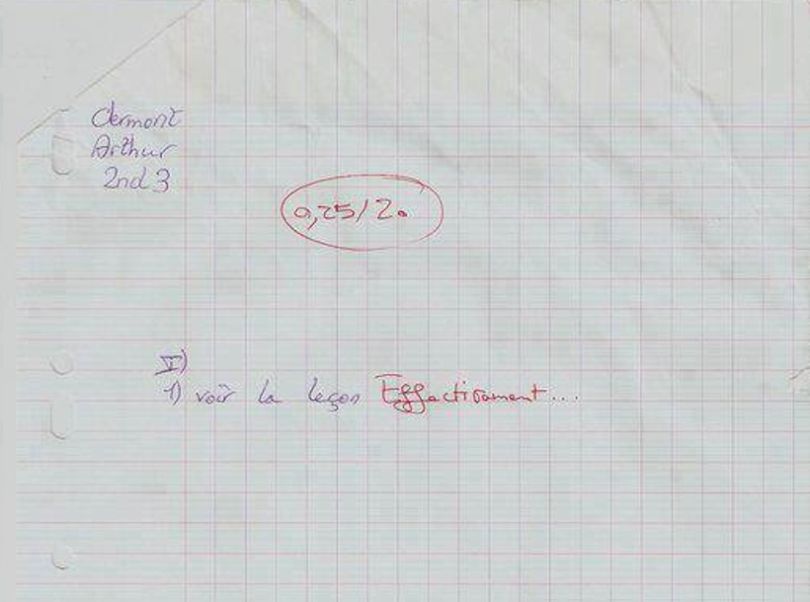 Clermont
Arthur
2nd 3
0,25/20
I)
1) voir la leçon Effectivement...